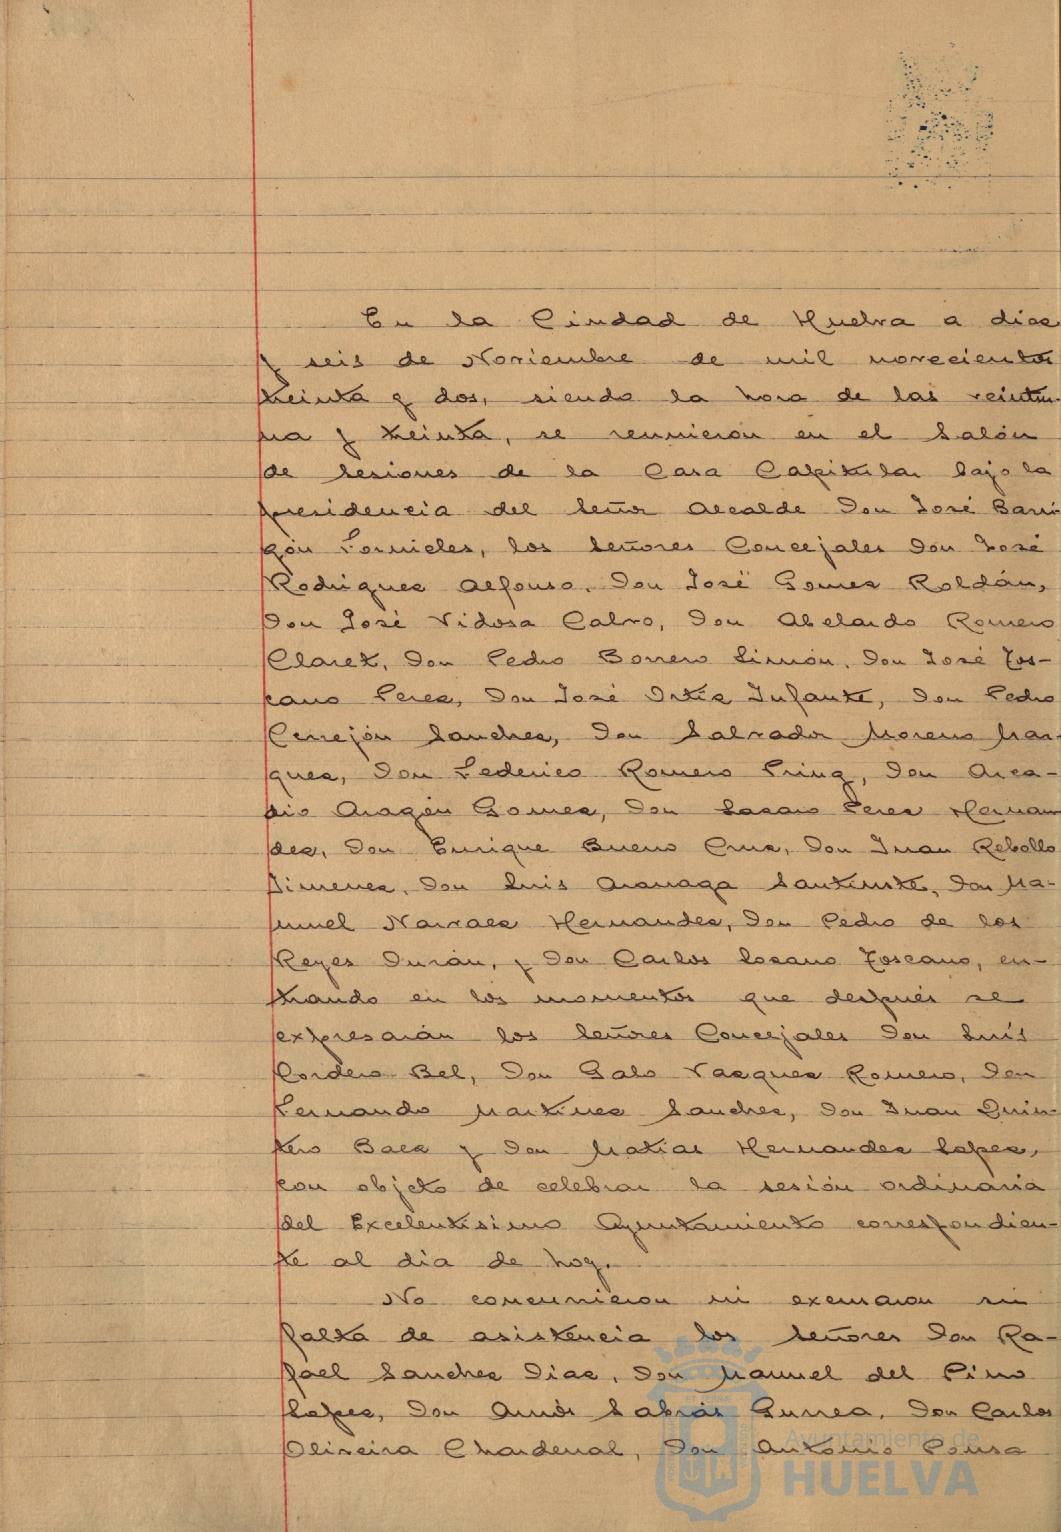 En la Ciudad de Huelva a diez
y seis de Noviembre de mil novecientos
treinta y dos, siendo la hora de las veintiu-
na y treinta, se reunieron en el Salón
de Sesiones de la Casa Capitular bajo la
presidencia del Señor Alcalde Don José Barri
gón Fornieles, los Señores Concejales Don José
Rodriguez Alfonso, Don José Gomez Roldán,
Don José Vidosa Calvo, Don Abelardo Romero
Claret, Don Pedro Borrero Limón, Don José Tos-
cano Perez, Don José Ortiz Infante, Don Pedro
Cerrejón Sanchez, Don Salvador Moreno Mar-
quez, Don Federico Romero Prinz, Don Arca-
dio Aragón Gomez, Don Perez Hernan
dez, Don Enrique Bueno Cruz, Don Juan Rebollo
Jimenez, Don Luis Aranaga Don Ma-
nuel Narvaez Hernandez, Don Pedro de los
Reyes Durán, y Don Carlos Lozano Toscano, en-
trando en los momentos que después se
expresarán los Señores Concejales Don Luis
Cordero Bel, Don Galo Vazquez Romero, Don
Fernando Martinez Sanchez, Don Juan Quin-
tero Baez y Don Matias Hernandez Lopez,
con objeto de celebrar la sesión ordinaria
del Excelentisimo Ayuntamiento correspondien-
te al dia de hoy.
No concurrieron ni excusaron su
falta de asistencia los Señores Don Ra-
fael Sanchez Diaz, Don Manuel del Pino
Lopez, Don Amós Sabrás Gurrea, Don Carlos
Oliveira Chardenal, Don Antonio Pousa
Ayuntamiento de
HUELVA